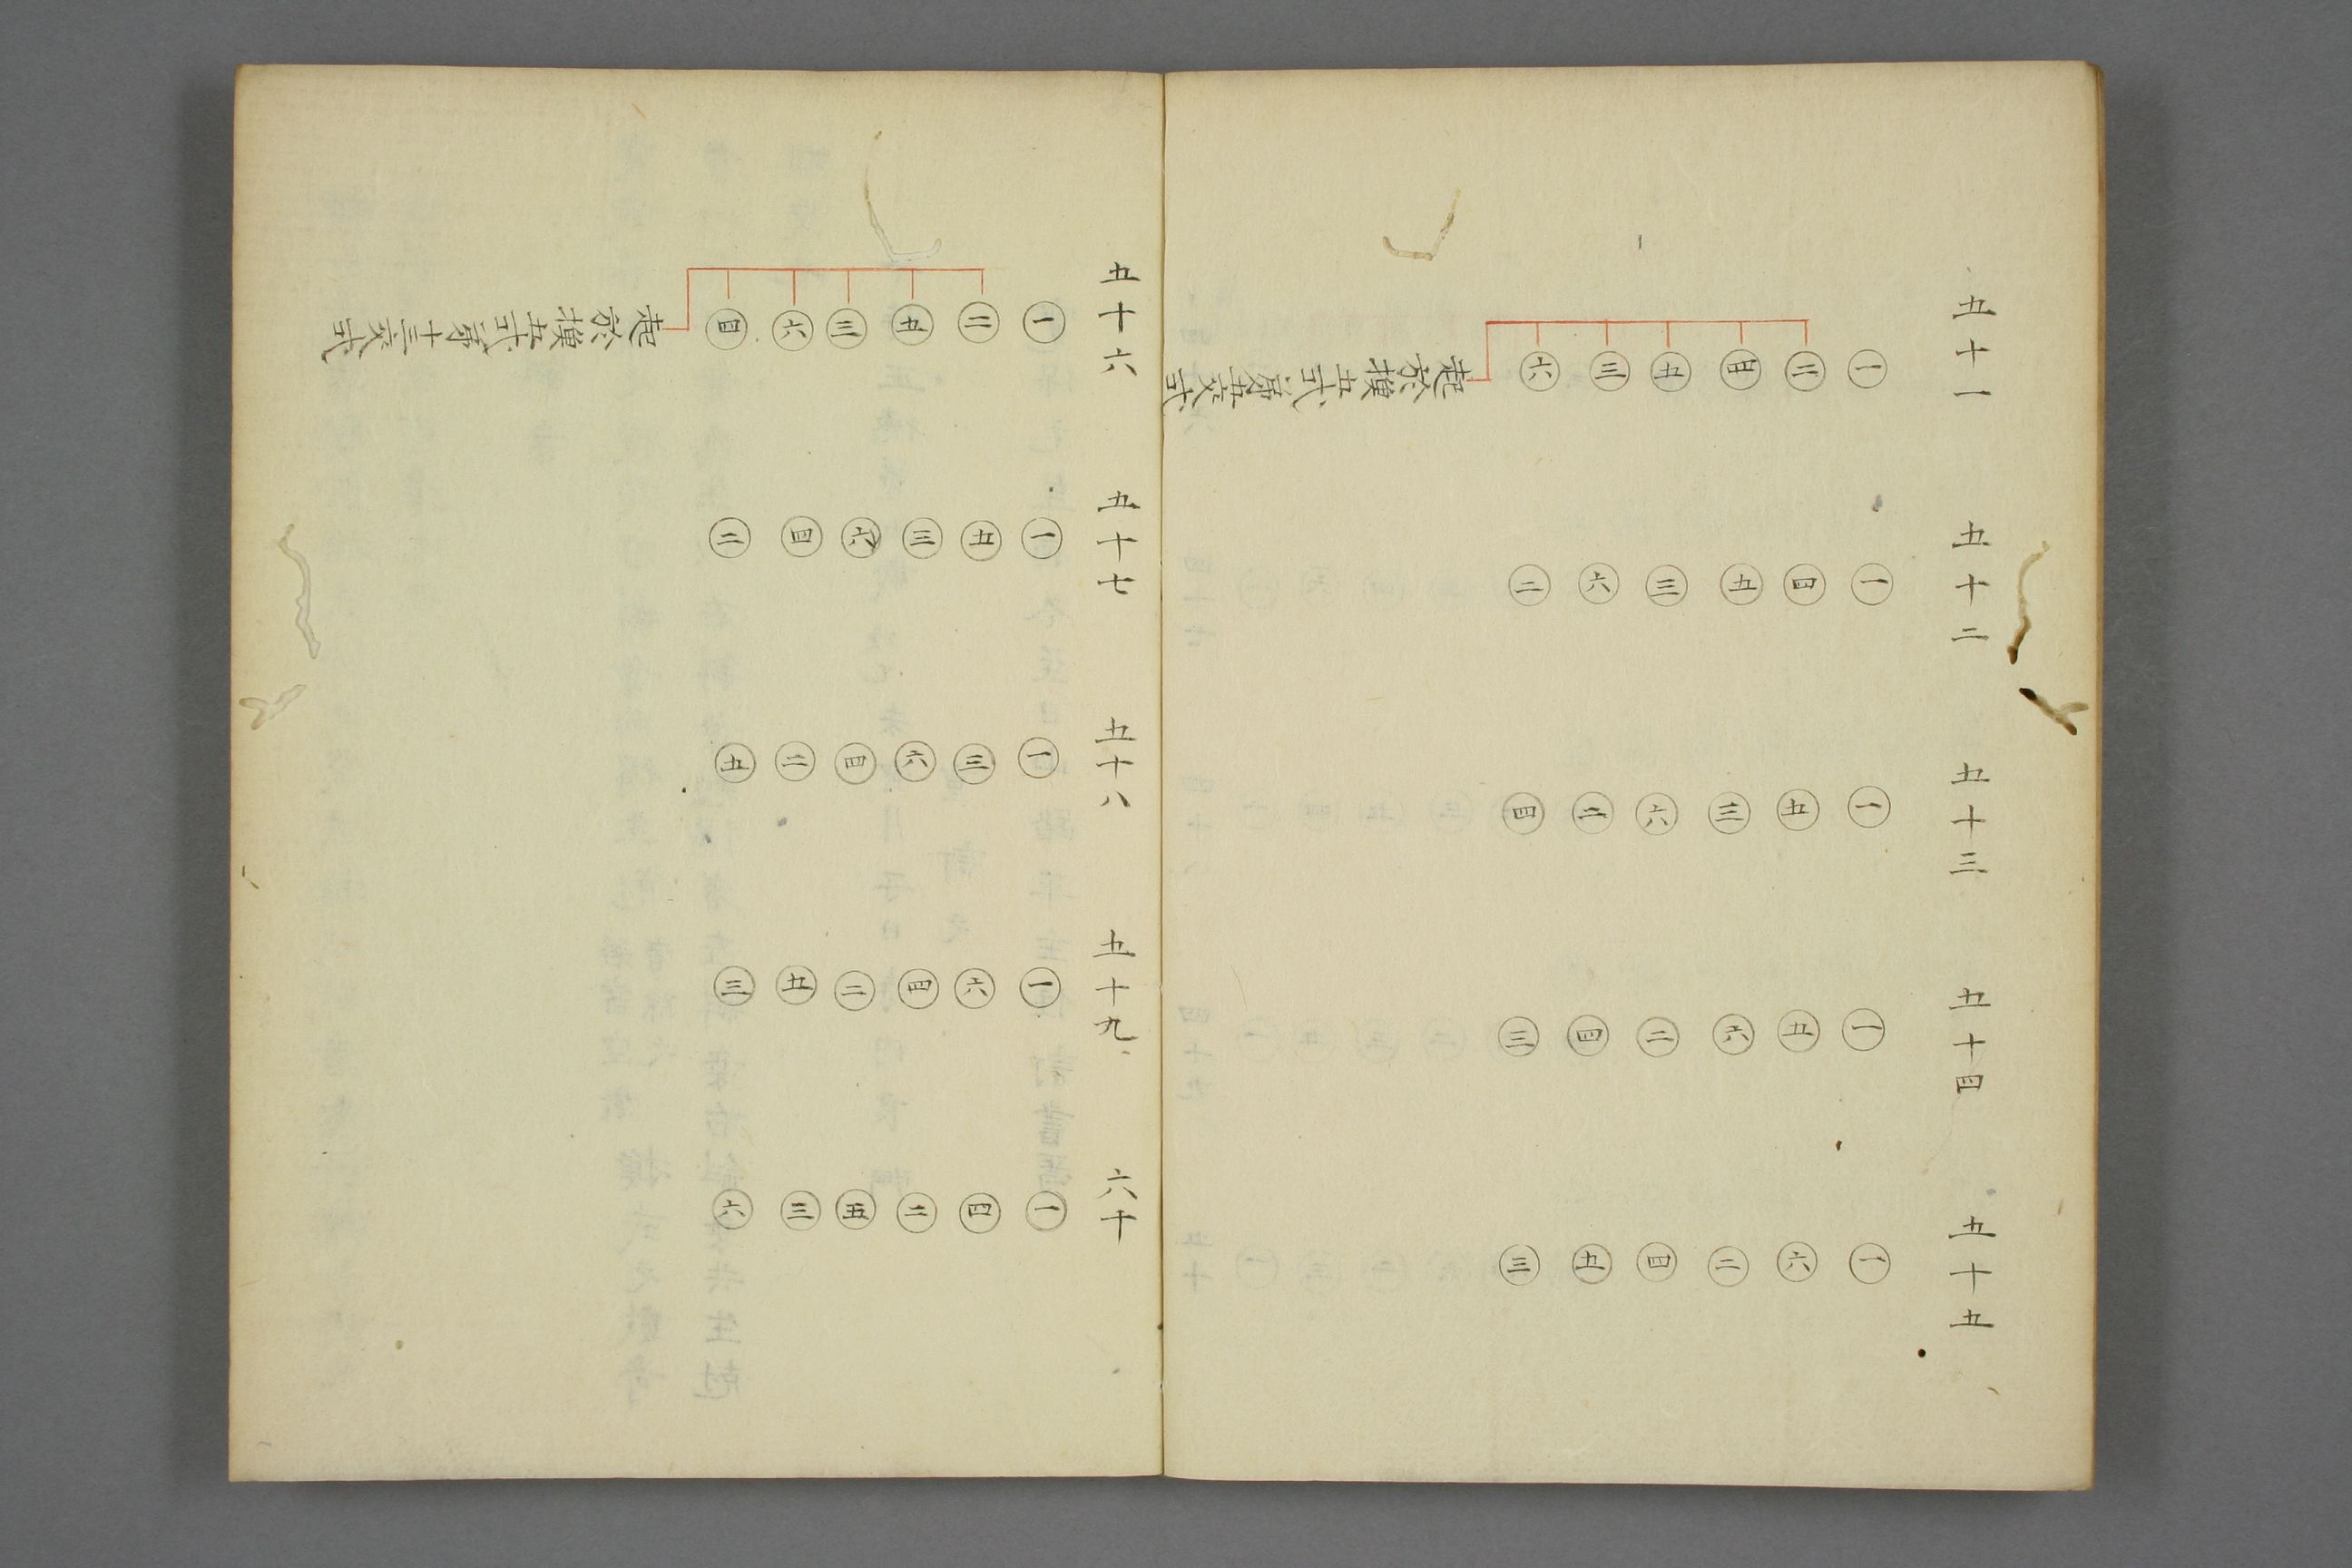 五十一
一 二 四 五 三 六
起於換五式第五交式
五十二
一 四 五 三 六 二
五十三
一 五 三 六 二 四
五十四
一 五 六 二 四 三
五十五
一 六 二 四 五 三
五十六
一 二 五 三 六 四
起於換五式第十三交式
五十七
一 五 三 六 四 二
五十八
一 三 六 四 二 五
五十九
一 六 四 二 五 三
六十
一 四 二 五 三 六